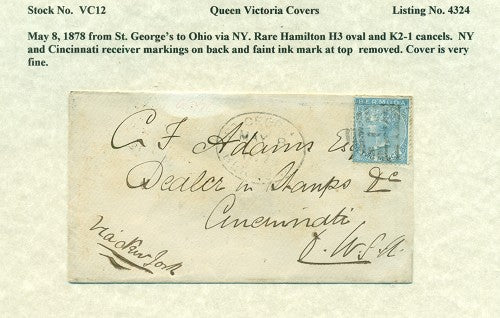 Stock No. VC12 Queen Victoria Covers Listing No. 4324
May 8, 1878 from St. George's to Ohio via NY. Rare Hamilton H3 oval and K2-1 cancels. NY
and Cincinnati receiver markings on back and faint ink mark at top removed. Cover is very
fine.
BERMUDA
C F Adams Esq
Dealer in Stamps &c
Cincinnati
O. U.S.A
via New York